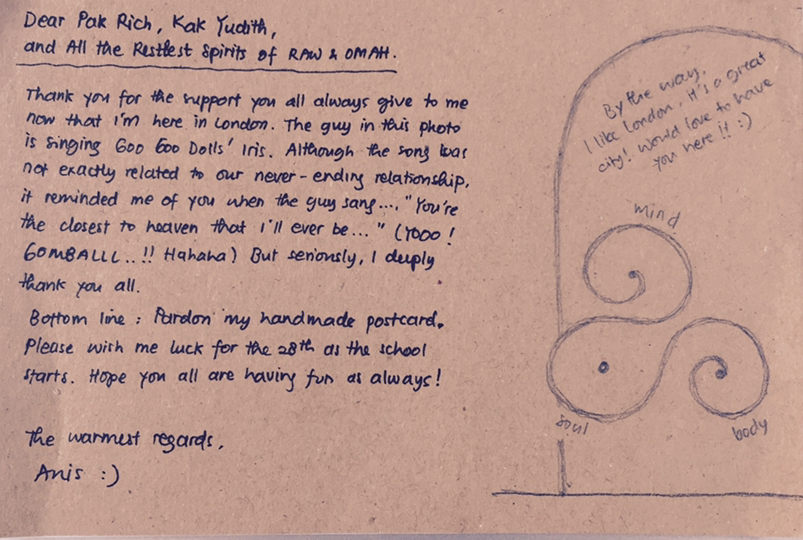 Dear Pak Rich, Kak Yudith,
and All the Restless Spirits of RAW & OMAH.
Thank you for the support you all always give to me
now that I'm here in London. The guy in this photo
is singing Goo Goo Dolls' Iris. Although the song was
not exactly related to our never-ending relationship,
it reminded me of you when the guy sang..., "You're
the closest to heaven that I'll ever be..." (YOOO!
GOMBALLL..!! Hahaha) But seriously, I deeply
thank you all.
Bottom line : Pardon my handmade postcard.
Please wish me luck for the 28th as the school
starts. Hope you all are having fun as always!
The warmest regards,
Anis :)
By the way,
I like London, it's a great
city! Would love to have
you here!! :)
mind
soul
body